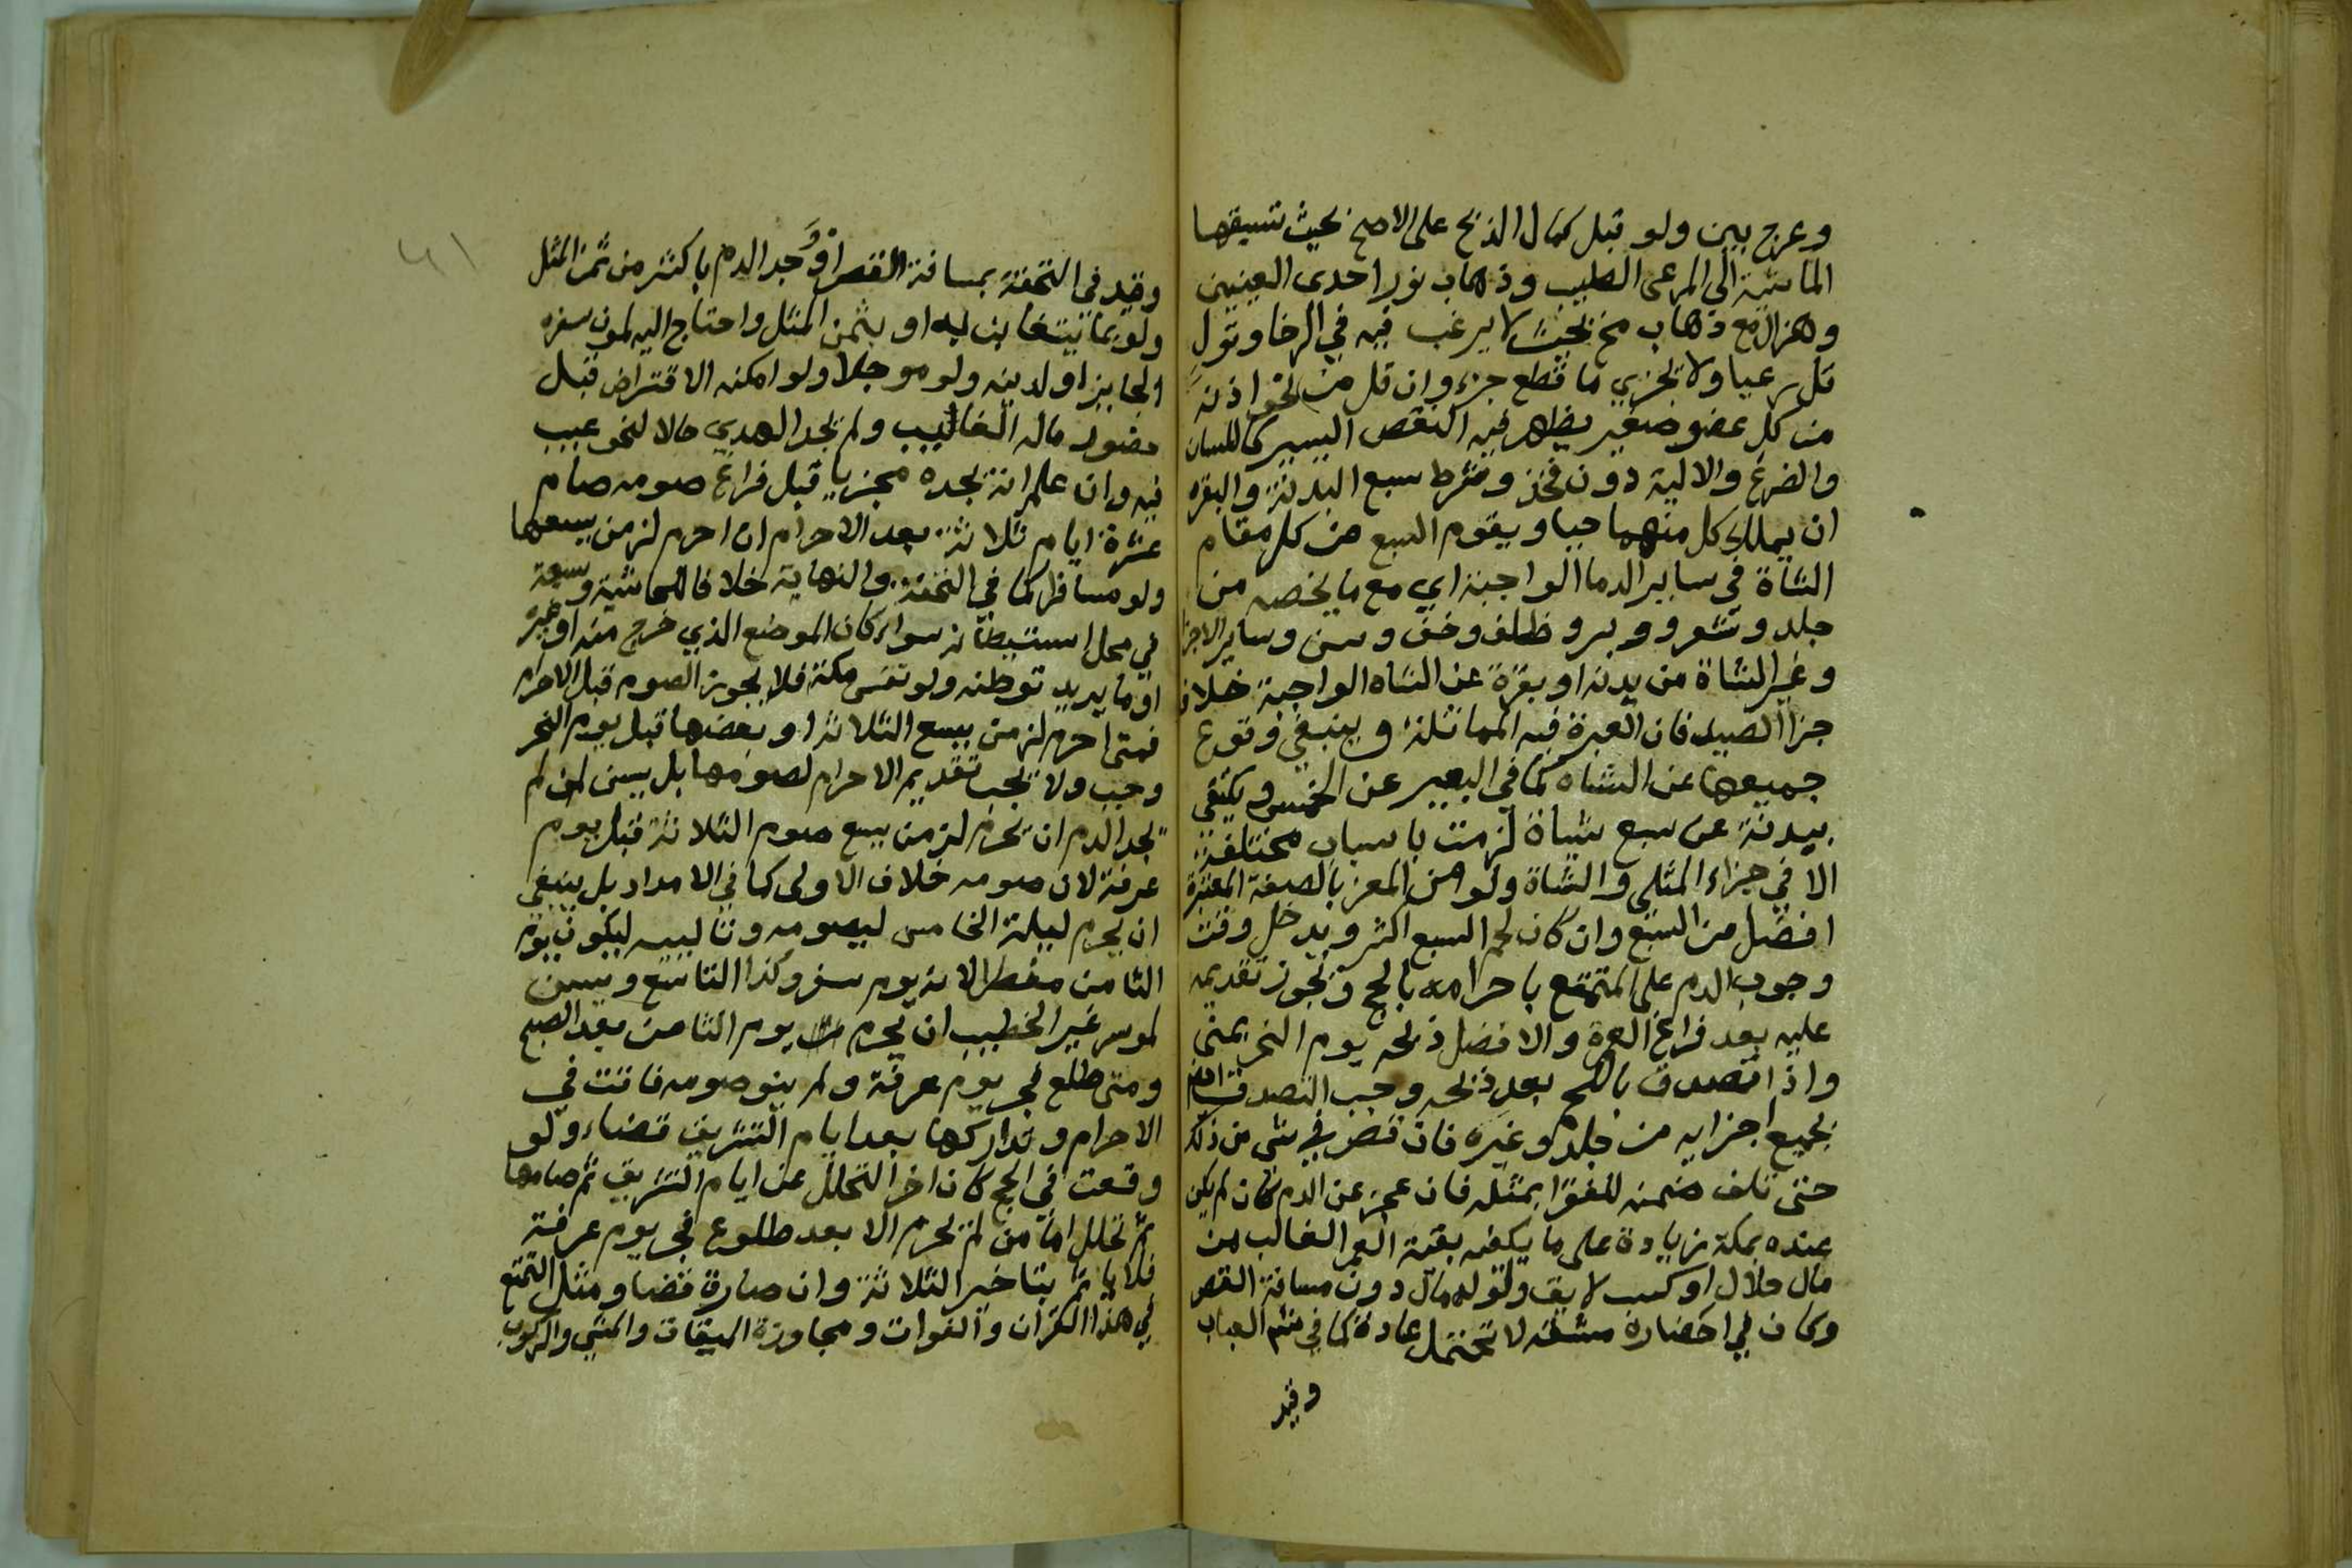 وعرج بين ولو قبل كمال الذبح على الاصح بحيث تسبقها
الماشية الي المرعى الطيب وذهاب نور احدى العينين
وهزال مع ذهاب مخ بحيث لا يرغب فيه في الرخا وتول
قل رعيا ولا تجزي ما قطع جزء وان قل من نحو اذنه
من كل عضو صغير يظهر فيه النقص اليسير كاللسان
والضرع والالية دون فخذ وشرط سبع البدنة والبقره
ان يملك كل منهما حيا ويقوم السبع من كل مقام
الشاة في ساير الدما الواجبة اي مع ما يخصه من
جلد وشعر ووبر وظلف وخف وسن وساير الاجزا
وغير الشاة من بدنه او بقرة عن الشاه الواجبة خلاف
جزا الصيد فان العبرة فيه المماثلة وينبغي وقوع
جميعها عن الشاه كما في البعير عن الخمس ويكتفي
ببدنة عن سبع شياة لزمت باسباب مختلفة
الا في جزاء المثلي والشاة ولو من المعز بالصفة المعتبرة
افضل من السبع وان كان لحم السبع اكثر ويدخل وقت
وجوب الدم على المتمتع باحرامه بالحج ويجوز تقديمه
عليه بعد فراغ العمرة والافضل ذبحه يوم النحر بمنى
واذا تصدق باللحم بعد ذبحه وجب التصدق
بجميع اجزايه من جلده وغيره فان قصر في شي من ذلك
حتى تلف ضمنه للفقرا بمثله فان عجز عن الدم بان لم يكن
عنده بمكة زيادة على ما يكفيه بقية العمر الغالب من
مال حلال او كسب لايق ولو له مال دون مسافة القصر
وكان في احضاره مشقة لا تحتمل عادة كما في العباب
وقيد
٤١
وقيد في التحفة بمسافة القصر او وجد الدم باكثر من ثمن المثل
ولو بما يتغابن به او بثمن المثل واحتاج اليه لمون سفره
الجايز او لدينه ولو موجلا ولو امكنه الاقتراض قبل
حضور ماله الغايب ولم يجد الهدي حالا لنحو عيب
فيه وان علم انة يجده مجزيا قبل فراغ صومه صام
عشرة ايام ثلاثة بعد الاحرام ان احرم لزمن يسعها
ولو مسافرا كما في التحفة والنهاية خلافا للحاشية وسبعة
في محل استيطانه سواء كان الموضع الذي خرج منه او غيره
او ما يريد توطنه ولو نفس مكة فلا يجوز الصوم قبل الاحرام
فمتى احرم لزمن يسع الثلاثة او بعضها قبل يوم النحر
وجب ولا يجب تقديم الاحرام لصومها بل يسن لمن لم
يجد الدم ان يحرم لزمن يسع صوم الثلاثة قبل يوم
عرفة لان صومه خلاف الاولى كما في الامداد بل ينبغي
ان يحرم ليلة الخامس ليصومه وتالييه ليكون يوم
الثامن مفطرا لانه يوم سفر وكذا التاسع ويسن
لموسر غير الخطيب ان يحرم يوم الثامن بعد الصبح
ومتى طلع فجر يوم عرفة ولم ينو صومه فاتت في
الاحرام وتداركها بعد ايام التشريق قضاء ولو
وقعت في الحج كان اخر التحلل عن ايام التشريق ثم صامها
ثم تحلل اما من لم يحرم الا بعد طلوع فجر يوم عرفة
فلا ياثم بتاخير الثلاثة وان صارة قضا ومثل التمتع
في هذا القران والفوات ومجاوزة الميقات والمشي والركوب